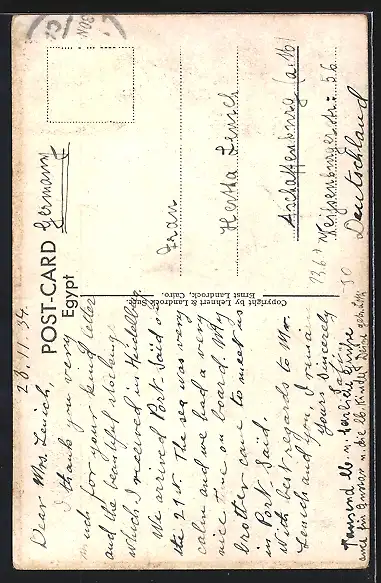 28.11.34.
Dear Mrs. Lenich,
I thank you very
much for your kind letter
and the beautiful
which I received in Heidelberg.
We arrived Port Saïd on
the 21st. The sea was very
calm and we had a very
nice time on board. My
brother came to meet us
in Port Saïd.
With best regards to Mr.
Lenich and you, I remain
Yours Sincerely
Tausend lb u. herzliche Grüsse
POST-CARD
Egypt
Germany
Copyright by Lehnert & Landrock Succ.
Ernst Landrock, Cairo.
Frau
Hertha Lenich
Aschaffenburg (a. M)
Weissenburgerstr. 56
Deutschland